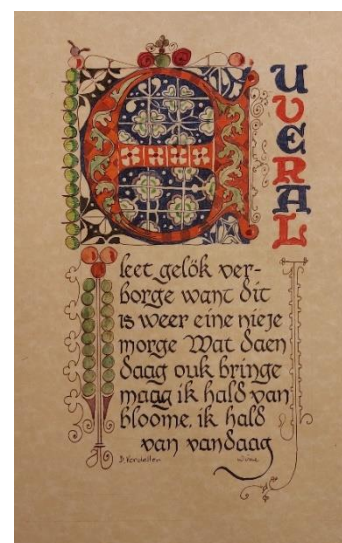 EUVERAL
leet gelök ver-
borge want dit
is weer eine nieje
morge Wat daen
daag ouk bringe
maag ik hald van
bloome, ik hald
van vandaag